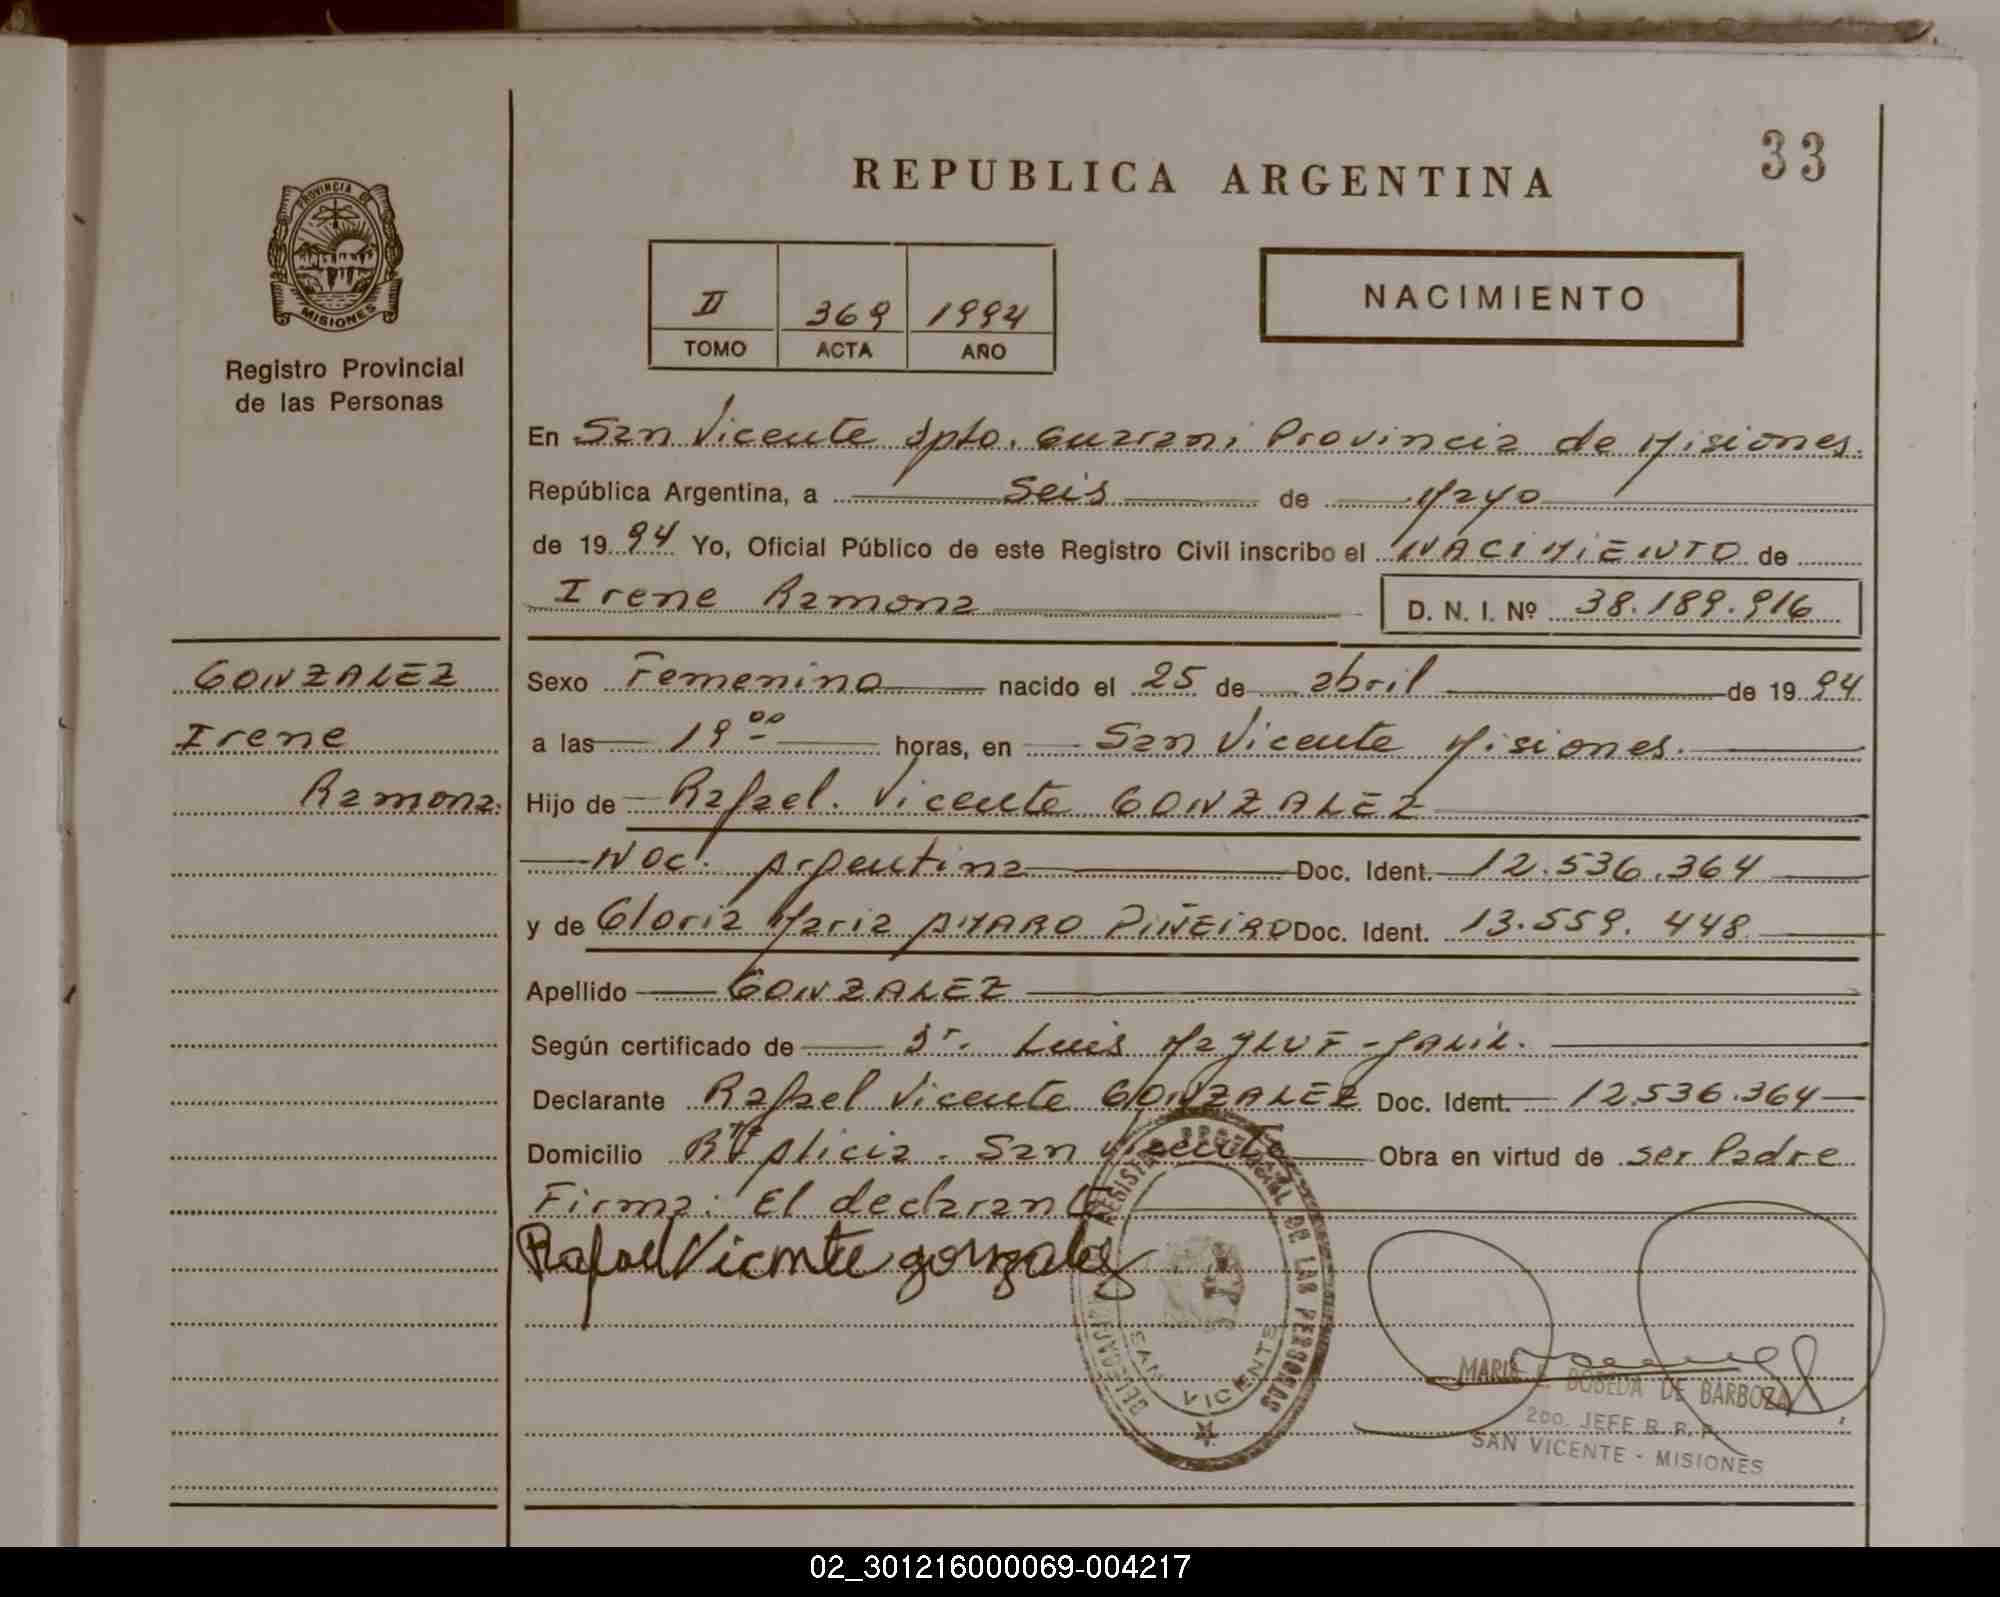 33
REPUBLICA ARGENTINA
PROVINCIA DE
MISIONES
Registro Provincial
de las Personas
II 369 1994
TOMO ACTA AÑO
NACIMIENTO
En San Vicente Dpto. Guarani Provincia de Misiones.
República Argentina, a Seis de Mayo
de 1994 Yo, Oficial Público de este Registro Civil inscribo el NACIMIENTO de
Irene Ramona D. N. I. Nº 38.189.916
GONZALEZ
Irene
Ramona.
Sexo Femenino nacido el 25 de abril de 1994
a las 19⁰⁰ horas, en San Vicente Misiones.
Hijo de Rafael. Vicente GONZALEZ
Nac. Argentina Doc. Ident. 12.536.364
y de Gloria Maria AMARO PIÑEIRO Doc. Ident. 13.559.448
Apellido GONZALEZ
Según certificado de Dr. Luis
Declarante Rafael Vicente GONZALEZ Doc. Ident. 12.536.364
Domicilio Alicia. San Vicente Obra en virtud de ser Padre
Firma: El declarante
Rafael Vicente gonzalez
REGISTRO PROVINCIAL DE LAS PERSONAS
DELEGACION
SAN VICENTE
MARIA E. BOBEDA DE BARBOZA
2DO. JEFE R. R. P.
SAN VICENTE - MISIONES
02_301216000069-004217